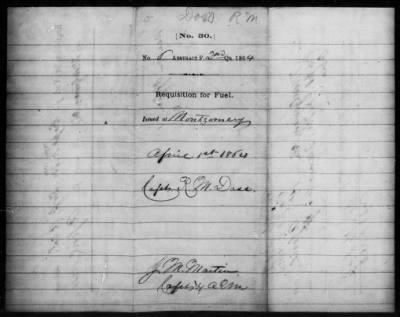 Doss R M
[No. 30.]
No. 6 Abstract F, 2nd Qr. 1864
Requisition for Fuel.
Issued at Montgomery
April 1st 1864
Capt. R. M. Doss.
J. M. Martin
Capt & AQM